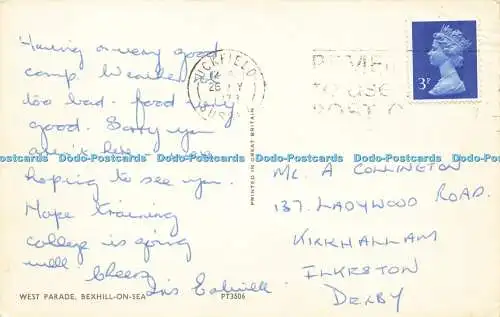 Having a very good
camp. Weather not
too bad. food very
good. Sorry you
aren't here
hoping to see you.
Hope training
college is going
well. Cheers
WEST PARADE, BEXHILL-ON-SEA
PT3506
PRINTED IN GREAT BRITAIN
UCKFIELD
REMEMBER
TO USE
POST CO
3P
MR. A COLLINGTON
137. LADYWOOD ROAD.
KIRKHALLAM
ILKESTON
DERBY
Dodo-Postcards Dodo-Postcards Dodo-Postcards Dodo-Postcards Dodo-Postcards Dodo-Postcards